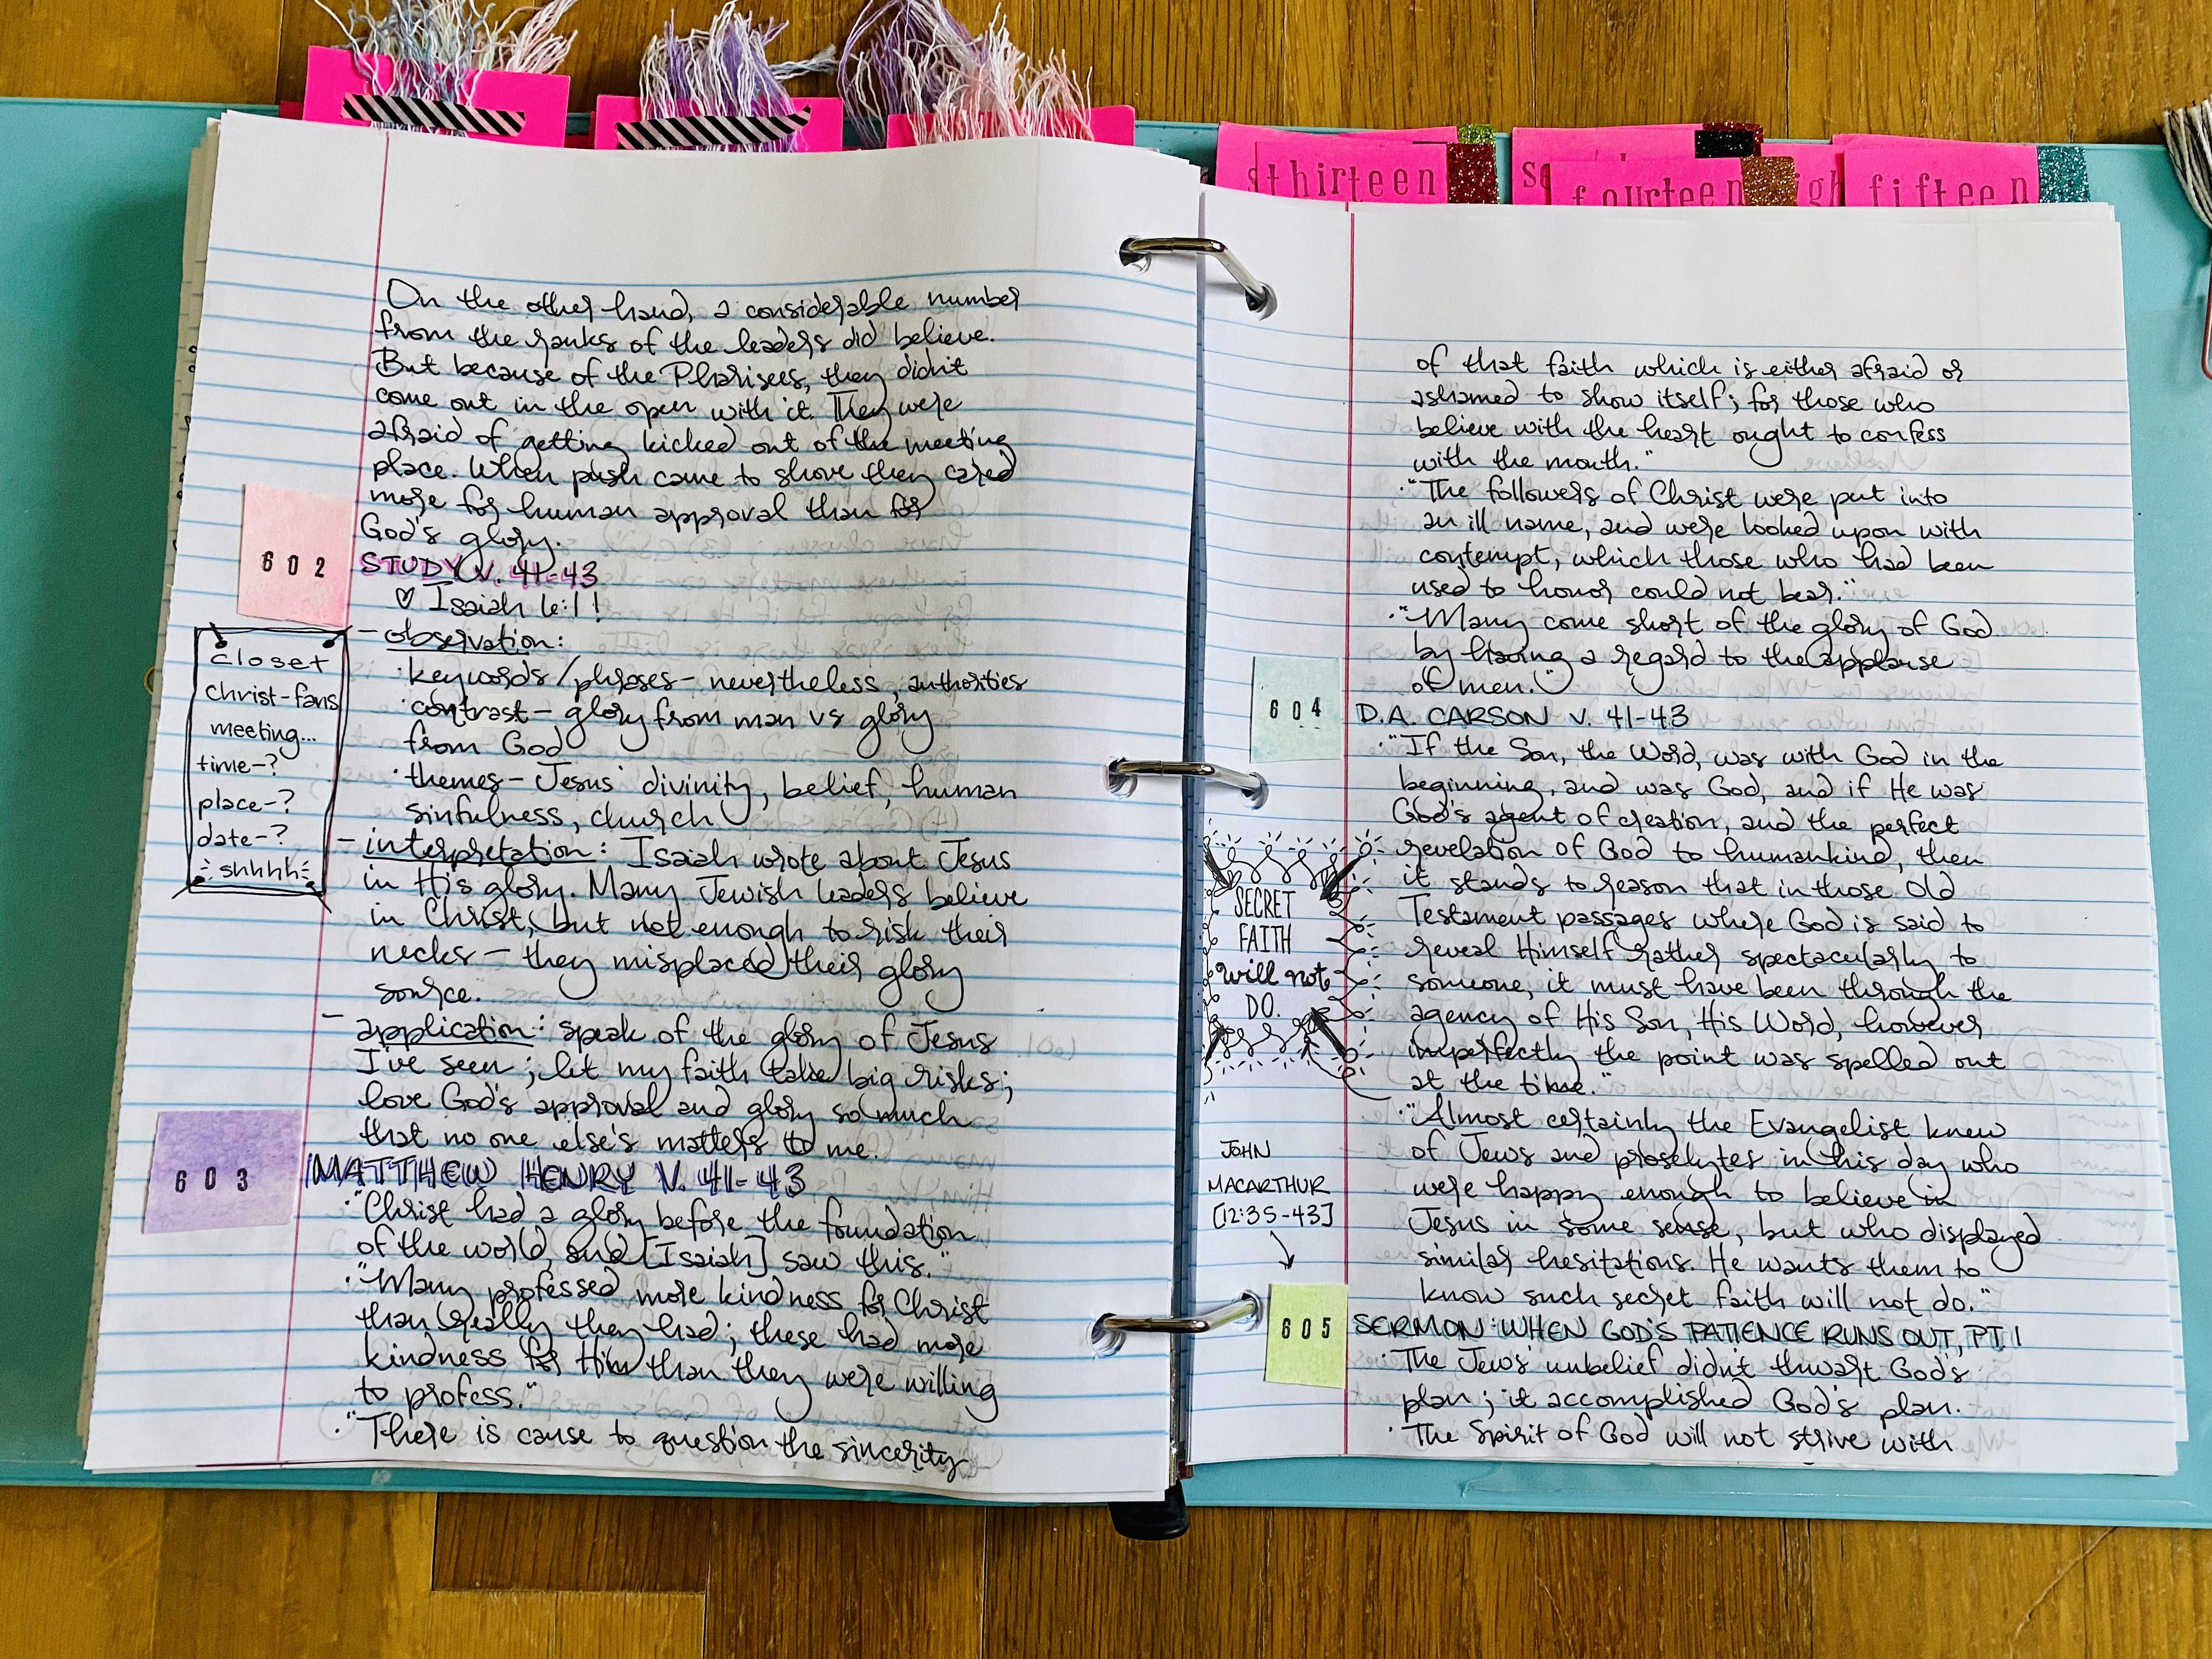 thirteen
fourteen
fifteen
On the other hand, a considerable number
from the ranks of the leaders did believe.
But because of the Pharisees, they didn't
come out in the open with it. They were
afraid of getting kicked out of the meeting
place. When push came to shove they cared
more for human approval than for
God's glory.
602
STUDY V. 41-43
♡ Isaiah 6:1!
- observation:
· keywords/phrases- nevertheless, authorities
· contrast- glory from man vs glory
from God
· themes- Jesus' divinity, belief, human
sinfulness, church
closet
Christ-fans
meeting...
time-?
place-?
date-?
shhhh
- interpretation: Isaiah wrote about Jesus
in His glory. Many Jewish leaders believe
in Christ, but not enough to risk their
necks - they misplaced their glory
source.
- application: speak of the glory of Jesus
I've seen; let my faith take big risks;
love God's approval and glory so much
that no one else's matters to me.
603
MATTHEW HENRY V. 41-43
· "Christ had a glory before the foundation
of the world, and [Isaiah] saw this."
· "Many professed more kindness for Christ
than really they had; these had more
kindness for Him than they were willing
to profess."
· "There is cause to question the sincerity
of that faith which is either afraid or
ashamed to show itself; for those who
believe with the heart ought to confess
with the mouth."
· "The followers of Christ were put into
an ill name, and were looked upon with
contempt, which those who had been
used to honor could not bear."
· "Many come short of the glory of God
by having a regard to the applause
of men."
604
D.A. CARSON V. 41-43
· "If the Son, the Word, was with God in the
beginning, and was God, and if He was
God's agent of creation, and the perfect
revelation of God to humankind, then
it stands to reason that in those Old
Testament passages where God is said to
reveal Himself rather spectacularly to
someone, it must have been through the
agency of His Son, His Word, however
imperfectly the point was spelled out
at the time."
SECRET
FAITH
will not
DO.
· "Almost certainly the Evangelist knew
of Jews and proselytes in his day who
were happy enough to believe in
Jesus in some sense, but who displayed
similar hesitations. He wants them to
know such secret faith will not do."
JOHN
MACARTHUR
[12:35-43]
605
SERMON: WHEN GOD'S PATIENCE RUNS OUT, PT 1
· The Jews' unbelief didn't thwart God's
plan; it accomplished God's plan.
· The Spirit of God will not strive with